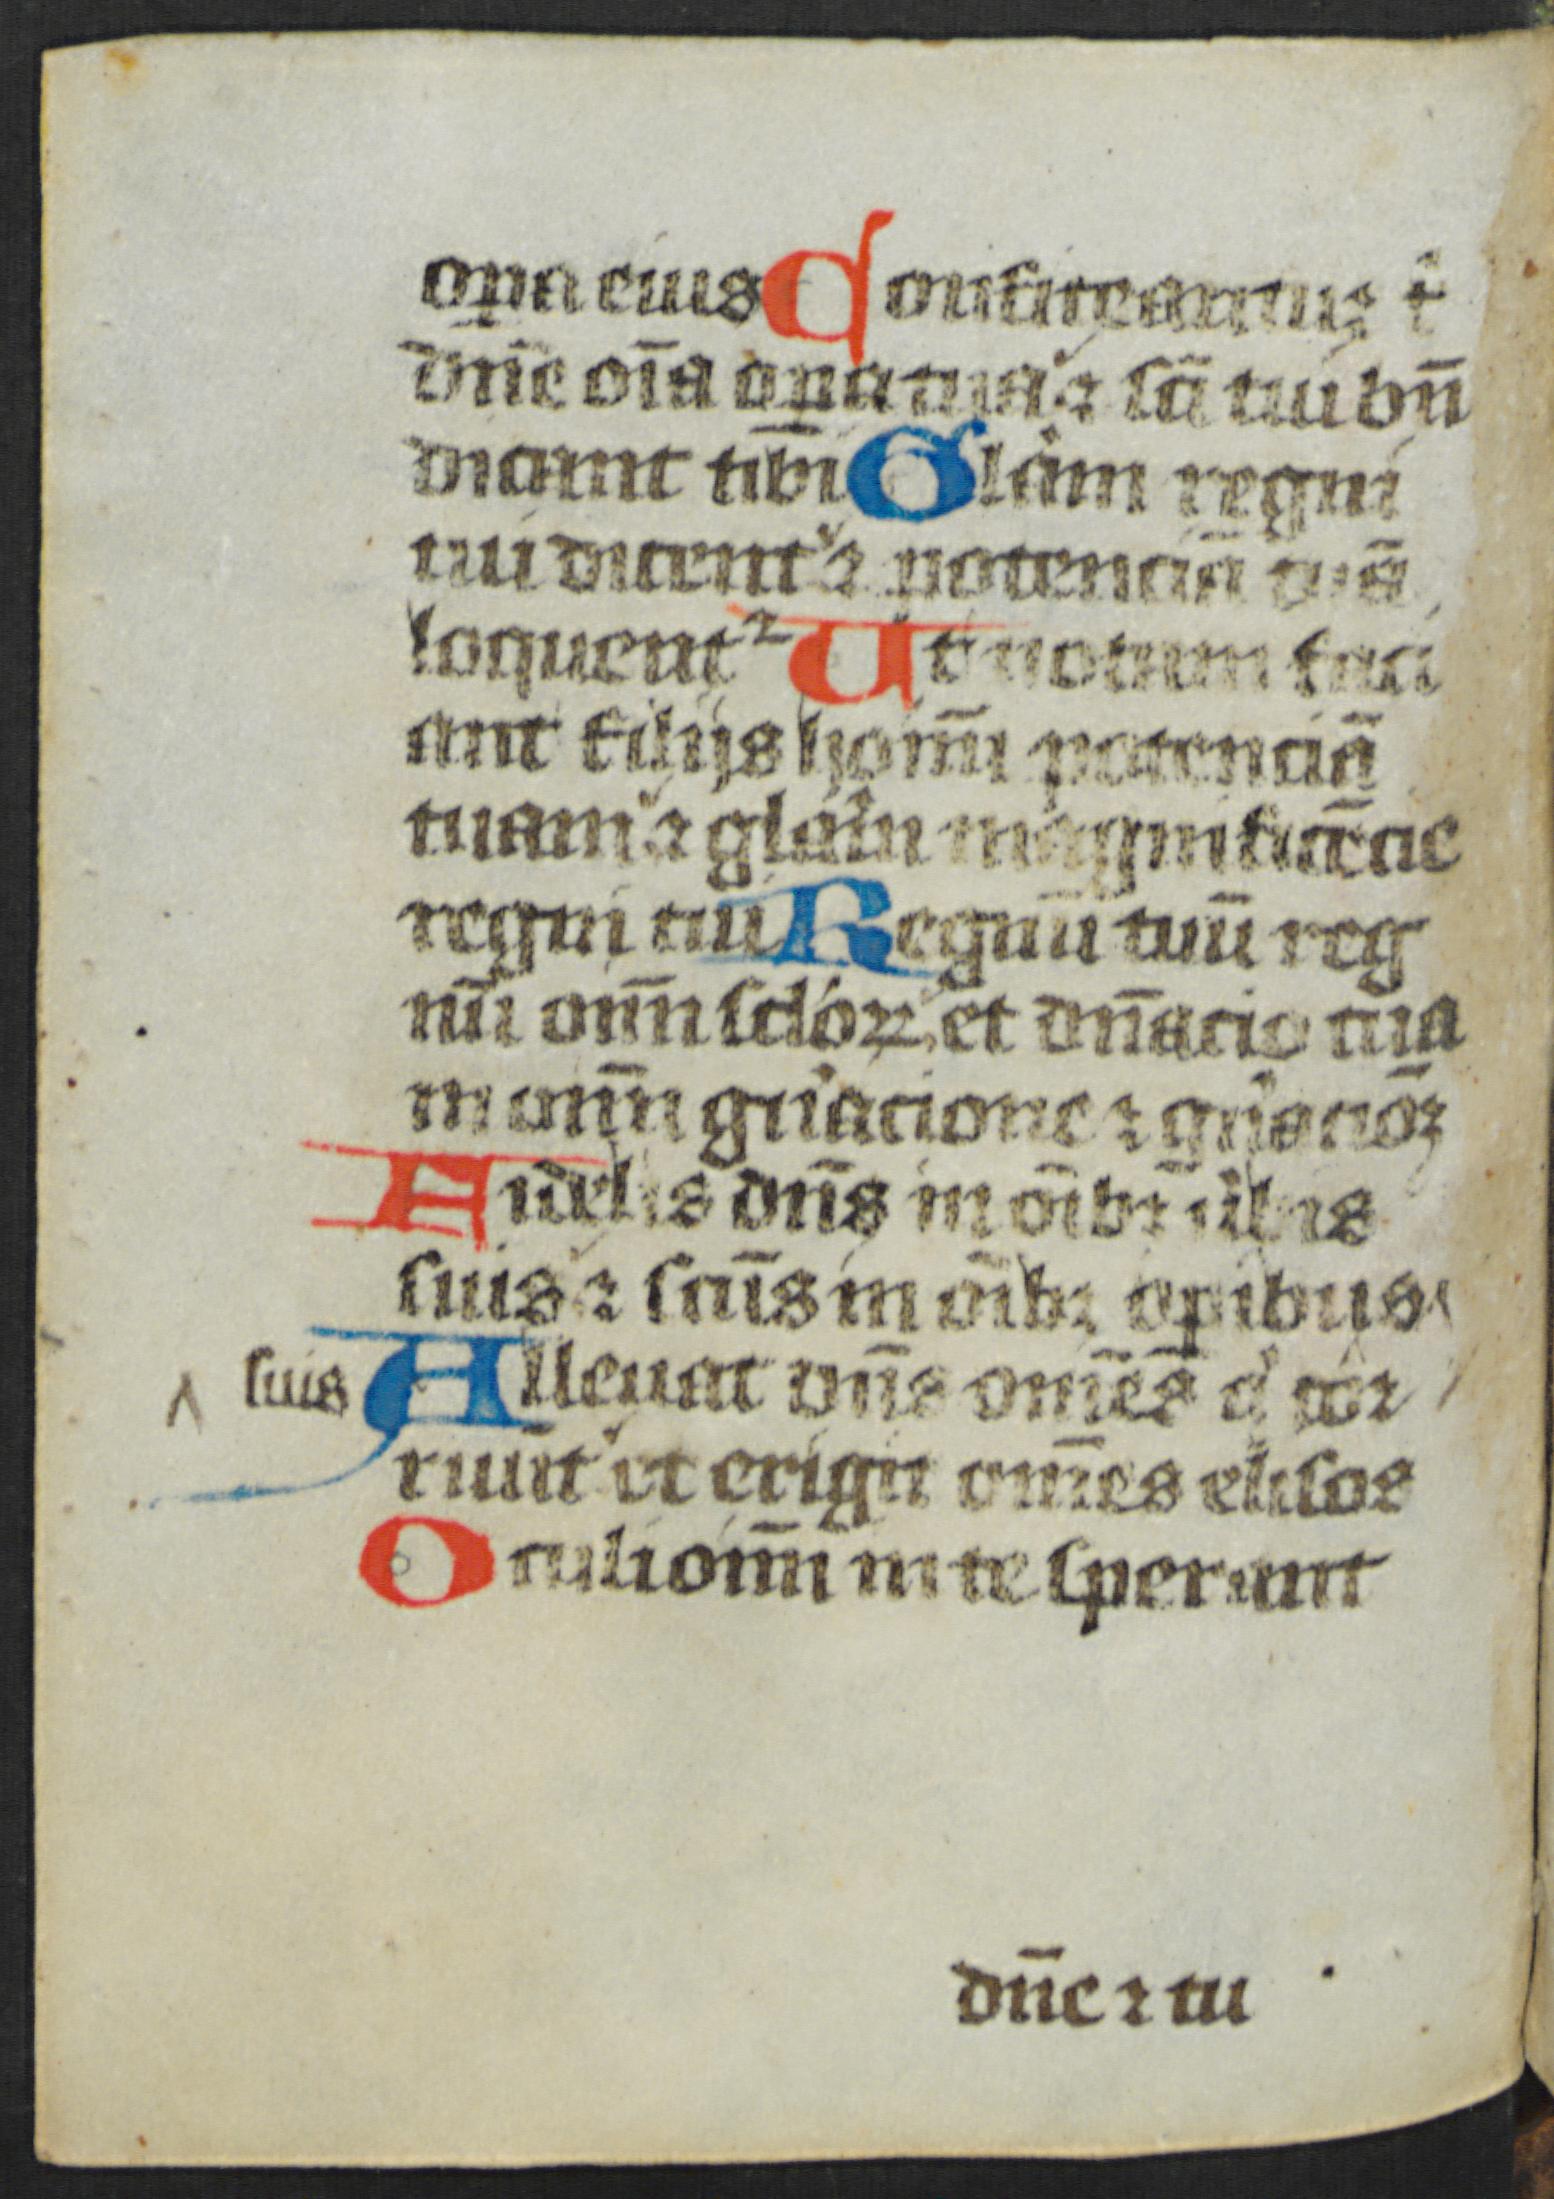 oꝑa eius Confiteantur t̄
dn̄e oīa oꝑa tua ⁊ sc̄i tui bn̄
dicant tibi Glāam regni
tui dicent ⁊ potenciā tuā
loquent² Vt notam faci
ant filijs homīn potenciā
tuam ⁊ glāam magnificēcie
regni tui Regnū tuū reg
nū om̄n sclōꝝ et dn̄acio tua
in om̄n gn̄acione ⁊ gn̄acōꝫ
Fidelis dn̄s in oībꝫ ūbis
suis ⁊ sctūs in oībꝫ oꝑibus
suis Alleuat dn̄s om̄es q̇ cor
ruūt et erigit om̄es elisos
Oculi om̄n in te sperant
dn̄e ⁊ tu